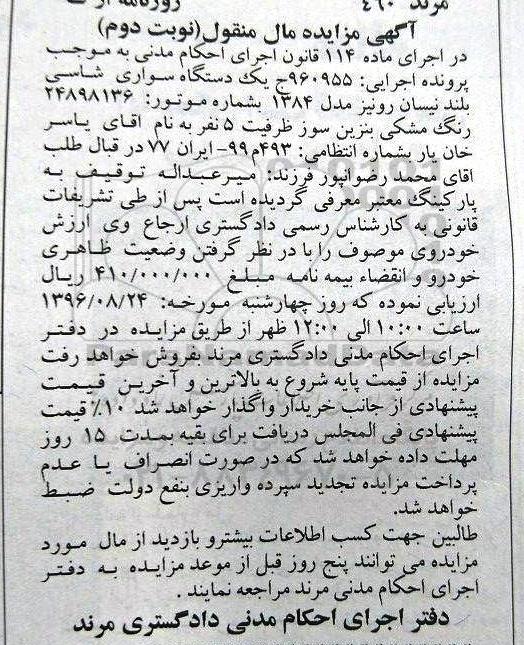 مرند ۴۶۰ روزنامه
آگهی مزایده مال منقول(نوبت دوم)
در اجرای ماده ۱۱۴ قانون اجرای احکام مدنی به موجب
پرونده اجرایی: ۹۶۰۹۵۵ج یک دستگاه سواری شاسی
بلند نیسان رونیز مدل ۱۳۸۴ بشماره موتور: ۲۴۸۹۸۱۳۶
رنگ مشکی بنزین سوز ظرفیت ۵ نفر به نام آقای یاسر
خان یار بشماره انتظامی: ۴۹۳م۹۹- ایران ۷۷ در قبال طلب
آقای محمد رضوانپور فرزند: میرعبداله توقیف به
پارکینگ معتبر معرفی گردیده است پس از طی تشریفات
قانونی به کارشناس رسمی دادگستری ارجاع وی ارزش
خودروی موصوف را با در نظر گرفتن وضعیت ظاهری
خودرو و انقضاء بیمه نامه مبلغ ۴۱۰/۰۰۰/۰۰۰ ریال
ارزیابی نموده که روز چهارشنبه مورخه: ۱۳۹۶/۰۸/۲۴
ساعت ۱۰:۰۰ الی ۱۲:۰۰ ظهر از طریق مزایده در دفتر
اجرای احکام مدنی دادگستری مرند بفروش خواهد رفت
مزایده از قیمت پایه شروع به بالاترین و آخرین قیمت
پیشنهادی از جانب خریدار واگذار خواهد شد ۱۰٪ قیمت
پیشنهادی فی المجلس دریافت برای بقیه بمدت ۱۵ روز
مهلت داده خواهد شد که در صورت انصراف یا عدم
پرداخت مزایده تجدید سپرده واریزی بنفع دولت ضبط
خواهد شد.
طالبین جهت کسب اطلاعات بیشترو بازدید از مال مورد
مزایده می توانند پنج روز قبل از موعد مزایده به دفتر
اجرای احکام مدنی مرند مراجعه نمایند .
دفتر اجرای احکام مدنی دادگستری مرند